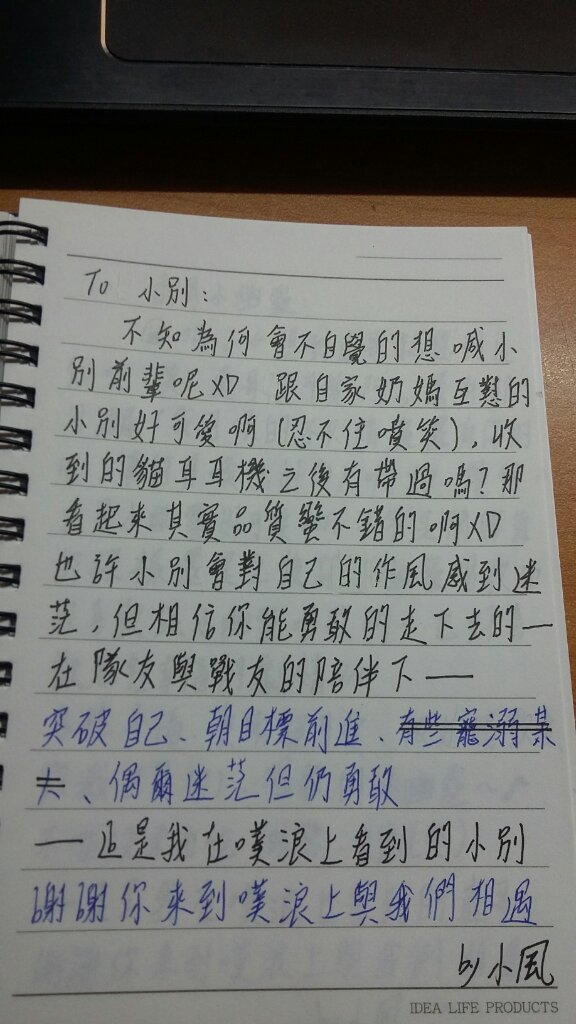 To 小別：
不知為何會不自覺的想喊小
別前輩呢XD 跟自家奶媽互懟的
小別好可愛啊(忍不住噴笑)，收
到的貓耳耳機之後有帶過嗎？那
看起來其實品質蠻不錯的啊XD
也許小別會對自己的作風感到迷
茫，但相信你能勇敢的走下去的—
在隊友與戰友的陪伴下——
突破自己、朝目標前進、有些寵溺某
犬、偶爾迷茫但仍勇敢
—這是我在噗浪上看到的小別
謝謝你來到噗浪上與我們相遇
by 小風
IDEA LIFE PRODUCTS